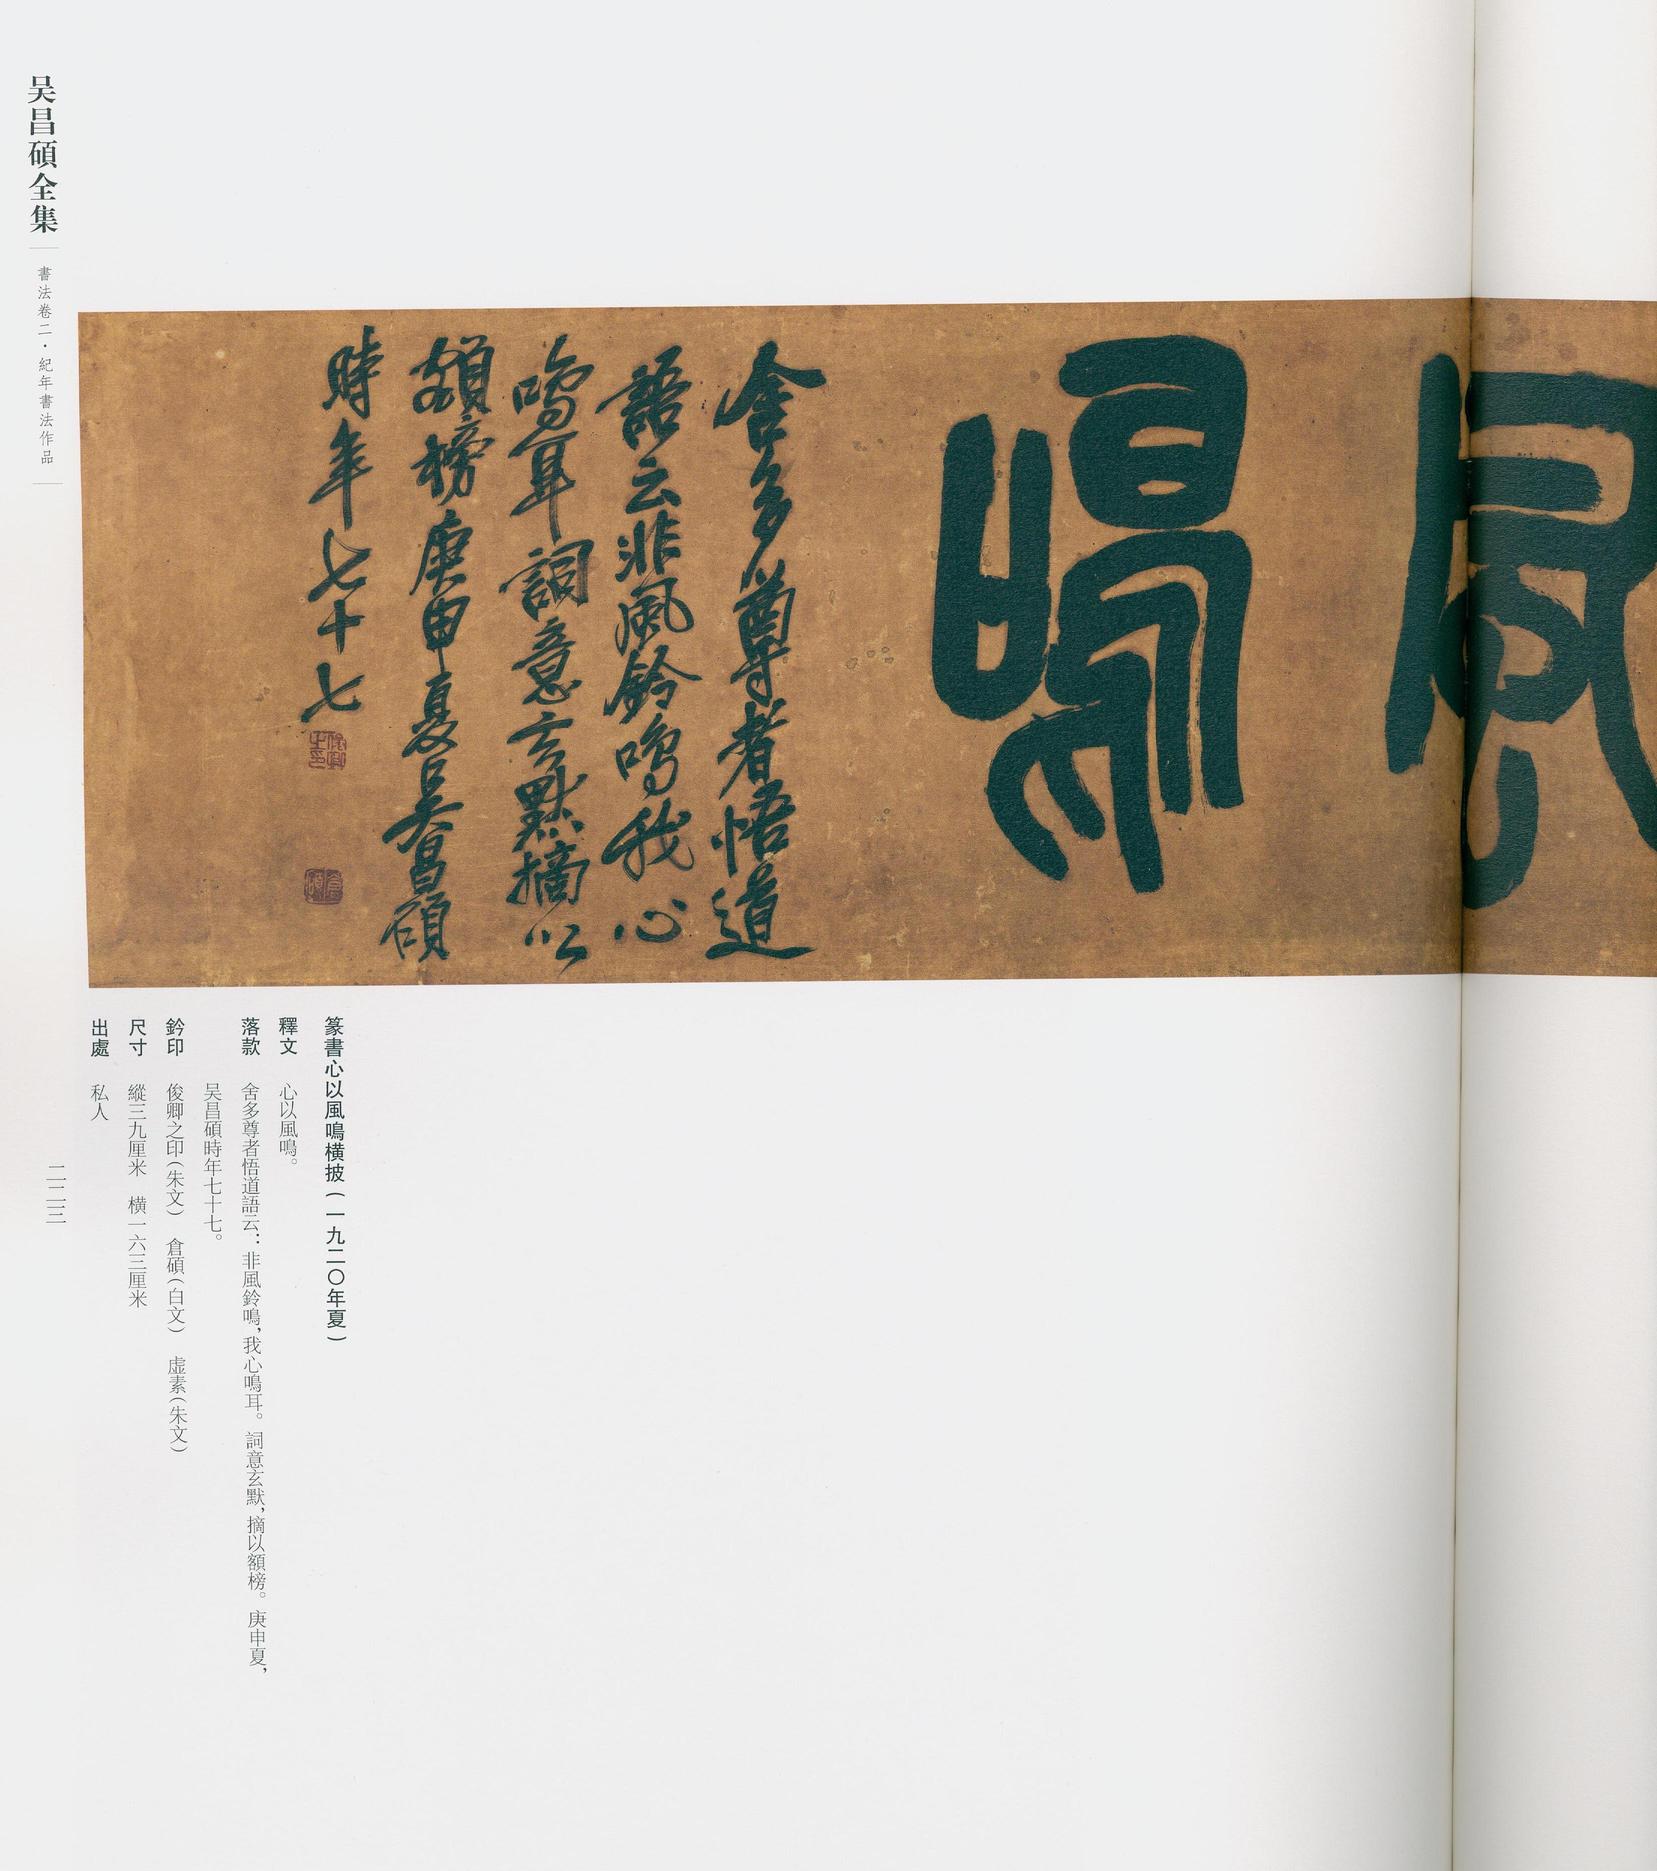 風鳴
舍多尊者悟道
語云非風鈴鳴我心
鳴耳詞意玄默摘以
額榜庚申夏吴昌碩
時年七十七
俊卿之印
倉碩
篆書心以風鳴横披(一九二〇年夏)
釋文　心以風鳴。
落款　舍多尊者悟道語云：非風鈴鳴，我心鳴耳。詞意玄默，摘以額榜。庚申夏，
吴昌碩時年七十七。
鈐印　俊卿之印(朱文)　倉碩(白文)　虚素(朱文)
尺寸　縱三九厘米　横一六三厘米
出處　私人
吴昌碩全集
書法卷二·紀年書法作品
二二三